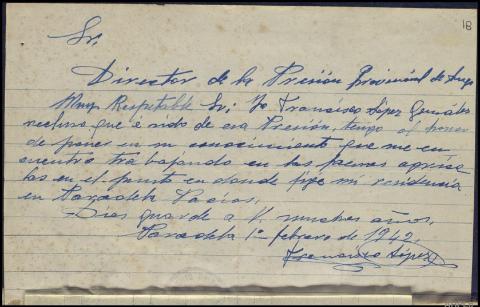 18
Sr.
Director de la Presión Provincial de Lugo
Muy Respetable Sr; Yo Francisco López González
recluso que é sido de esa Presión, tengo el honor
de poner en su conocimiento que me en
cuentro trabajando en las faenas agríco
las en el punto en donde fije mi residencia
en Paradela Pacios.
Dios guarde a V. muchos años.
Paradela 1º febrero de 1942.
Francisco López